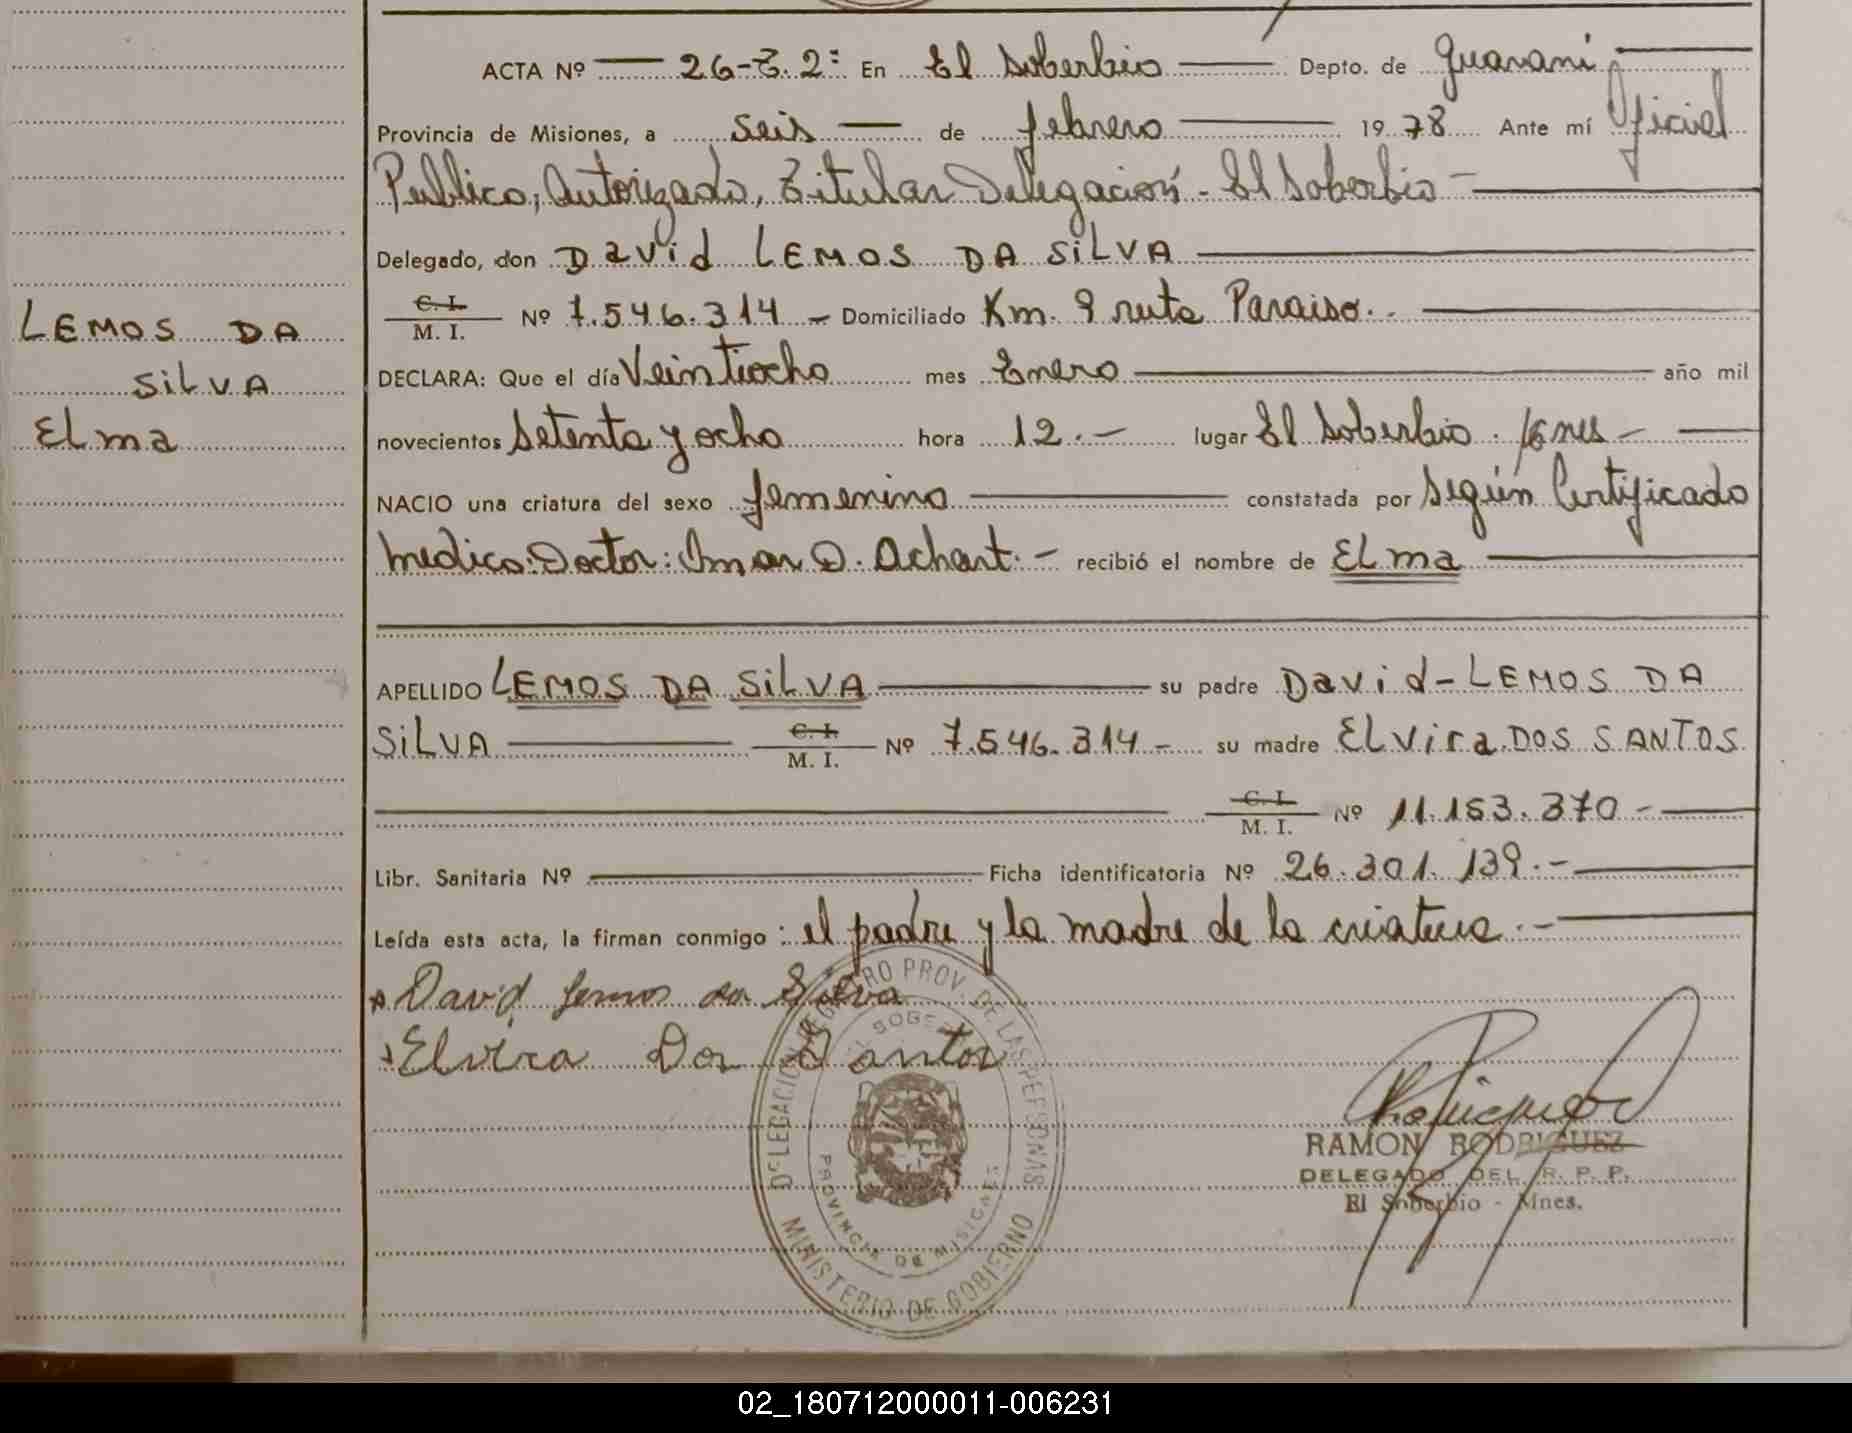 ACTA Nº 26-T. 2º En El Soberbio Depto. de Guarani
Provincia de Misiones, a seis de febrero 1978 Ante mí Oficial
Publico, Autorizado, Titular Delegación - El Soberbio -
Delegado, don David LEMOS DA SiLVA
C. I.
M. I. Nº 7.546.314 - Domiciliado Km. 9 ruta Paraiso.
LEMOS DA
SiLVA
ELma
DECLARA: Que el día Veintiocho mes Enero año mil
novecientos Setenta y ocho hora 12.- lugar El Soberbio.
NACIO una criatura del sexo femenino constatada por Según Certificado
Medico: Doctor: Omar D. Achart.- recibió el nombre de ELma
APELLIDO LEMOS DA SiLVA su padre David-LEMOS DA
SiLVA C. I. M. I. Nº 7.546.314- su madre ELvira DOS SANTOS
C. I. M. I. Nº 11.153.370-
Libr. Sanitaria Nº Ficha identificatoria Nº 26.301.139.-
Leída esta acta, la firman conmigo: el padre y la madre de la criatura.-
David Lemos da Silva
Elvira Dos Santos
DELEGACION REGISTRO PROV. DE LAS PERSONAS
EL SOBERBIO
PROVINCIA DE MISIONES
MINISTERIO DE GOBIERNO
RAMON RODRIGUEZ
DELEGADO DEL R. P. P.
El Soberbio - Mnes.
02_180712000011-006231